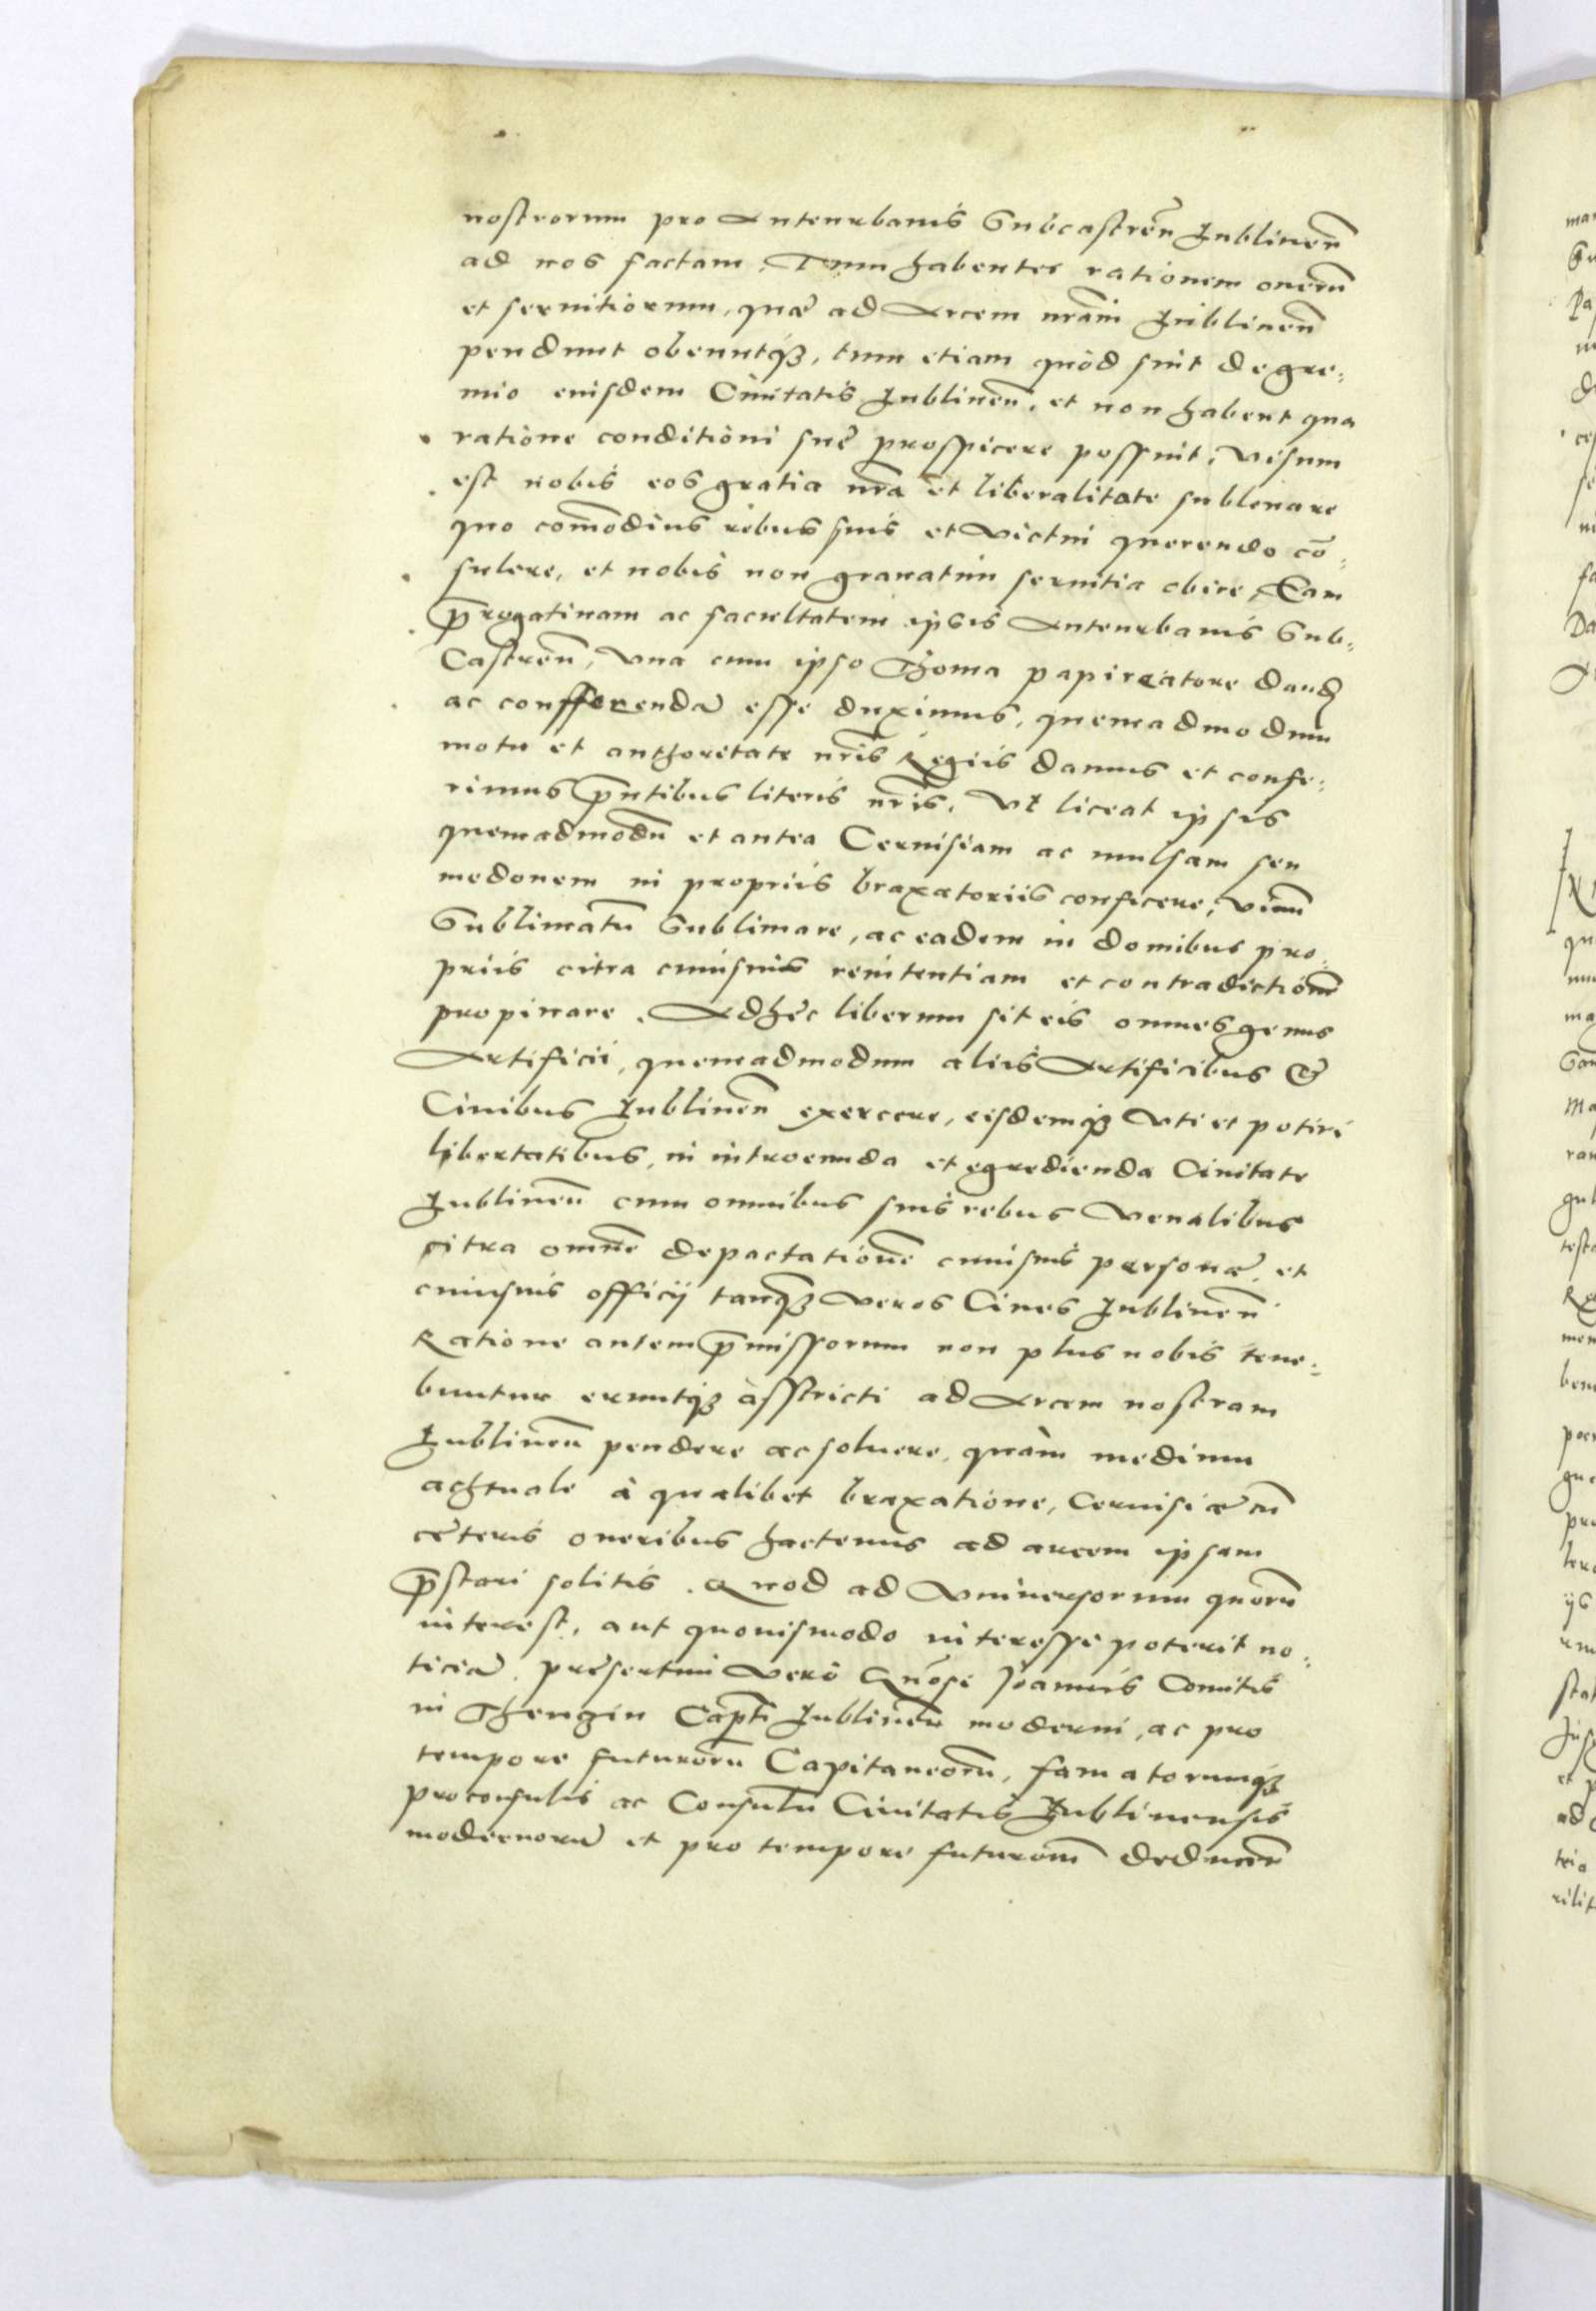 nostrorum pro Anteurbanis Subcastreñ Lublineñ
ad nos factam. Tum habentes rationem onerũ
et seruitiorum, quæ ad Arcem nr̃am Lublineñ
pendunt obeuntqꝫ, tum etiam quòd sint de gre:
mio eiusdem Ciuitatis Lublineñ, et non habent qua
ratione conditioni suę prospicere possint, Visum
est nobis eos gratia nr̃a et liberalitate subleuare
quo com̃odius rebus suis et victui querendo cõ:
sulere, et nobis non grauatim seruitia obire, Eam
p̃rogatiuam ac facultatem ipsis Anteurbanis Sub:
Castreñ, vna cum ipso Thoma papireatore dand
ac confferendã esse duximus, quemadmodum
motu et authoritate nr̃is Regiis damus et confe:
rimus p̃ntibus literis nr̃is, Vt liceat ipsis
quemadmodũ et antea Ceruisiam ac mulsam seu
medonem in propriis braxatoriis conficere, vinũ
Sublimatũ Sublimare, ac eadem in domibus pro:
priis citra cuiusuis renitentiam et contradictionẽ
propinare. Adhęc liberum sit eis omnes genus
Artificii, quemadmodum aliis Artificibus &
Ciuibus Lublineñ exercere, eisdemqꝫ vti et potiri
libertatibus, in introeunda et egredienda Ciuitate
Lublineñ cum omnibus suis rebus venalibus
citra omnẽ depactationẽ cuiusuis personæ, et
cuiusuis officij tanqꝫ veros Ciues Lublineñ
Ratione autem p̃missorum non plus nobis tene:
buntur eruntqꝫ àsstricti ad Arcem nostram
Lublineñ pendere ac soluere, quàm medium
achtuale à qualibet braxatione, Ceruisiæ cũ
cęteris oneribus hactenus ad arcem ipsam
p̃stari solitis. Quod ad Vniuersorum quorũ
interest, aut quouismodo interesse poterit no:
ticiã, pręsertim verò Gn̄osi Joannis Comitis
in Thenzin Cap̃ti Lublineñ moderni, ac pro
tempore futurorũ Capitaneorũ, famatorumqꝫ
proconsulis ac Consulũ Ciuitatis Lublinensis
modernorũ et pro tempore futurorũ deduceñ